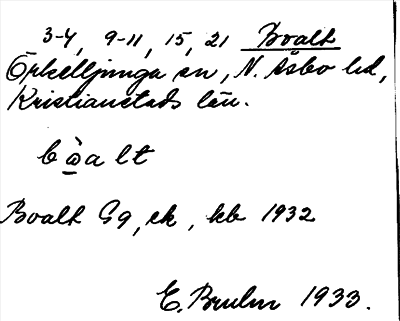 3-4, 9-11, 15, 21 Boalt
Örkelljunga sn, N. Åsbo hd,
Kristianstads län.
bòalt
Boalt Gg, sk, kb 1932
E. Bruhn 1933.